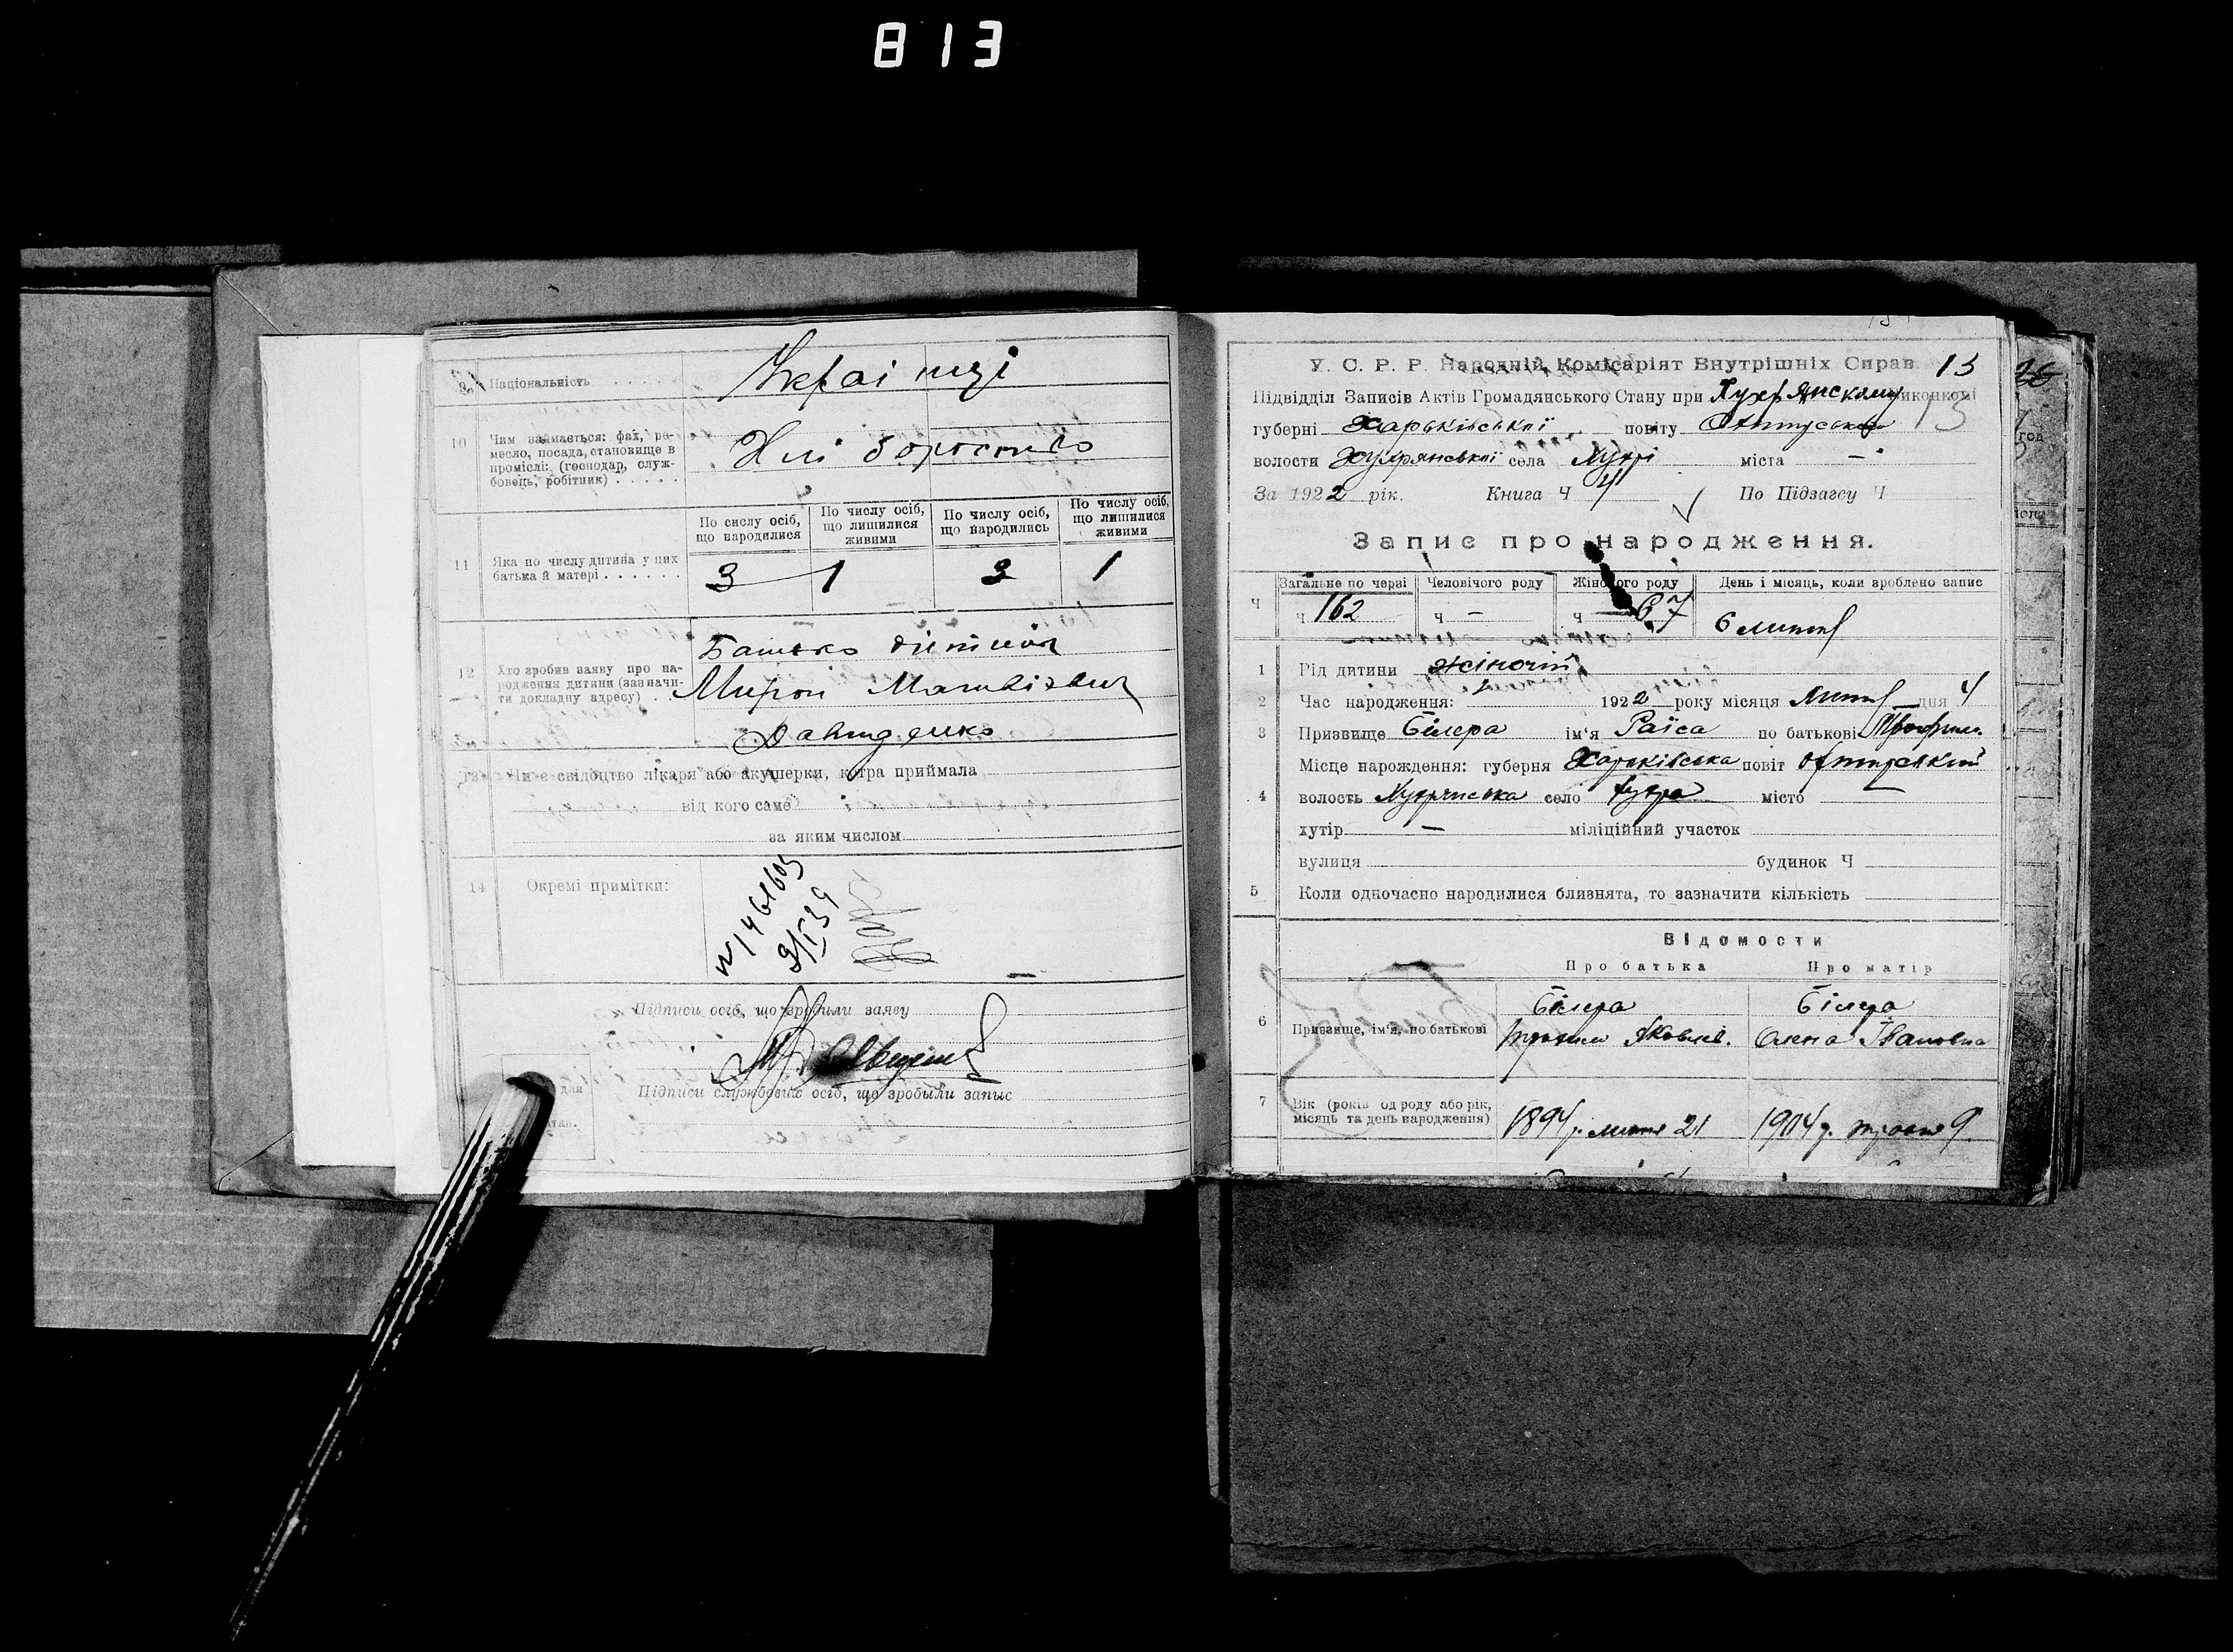 813
Національність . . . . .
Українці
10 Чим займається: фах, ре-
месло, посада, становище в
проміслі: (господар, служ-
бовець, робітник) . . . . .
По числу осіб, що народилися
По числу осіб, що лишилися живими
По числу осіб, що народились
По числу осіб, що лишилися живими
11 Яка по числу дитина у цих
батька й матері . . . . . .
3 1 3 1
12 Хто зробив заяву про на-
родження дитини (зазначи-
ти докладну адресу) . .
Батько дитини
Мирон Матвієвич
Давиденко
Чи є свідоцтво лікаря або акушерки, котра приймала
від кого саме
за яким числом
14 Окремі примітки:
Підписи осіб, що зробили заяву
Підписи службових осіб, що зробыли запыс
У. С. Р. Р. Народній Комісаріят Внутрішніх Справ 13
Підвідділ Записів Актів Громадянського Стану при Хухрянскому виконкомі
13
губерні Харьківської повіту
волости Хухрянської села Хухрі міста —
За 1922 рік. Книга Ч По Підзагсу Ч
Запис про народження.
Загальне по черзі Человічого роду Жіночого роду День і місяць, коли зроблено запис
Ч ч 162 ч — ч 67 6 лютого
1 Рід дитини жіночій
2 Час народження: 1922 року місяця лютого дня 4
3 Призвище Білера ім'я Раїса по батькові
Місце нарождення: губерня Харьківська повіт Охтирський
4 волость Хухрянська село Хухра місто
хутір — міліційний участок
вулиця будинок Ч
5 Коли одночасно народилися близнята, то зазначити кількість
Відомости
Про батька Про матір
6 Призвище, ім'я, по батькові
Білера
Трохим Яковлів.
Білера
Олена Івановна
7 Вік (років од роду або рік,
місяць та день народження)
1894 р. 21
1904 р. 9